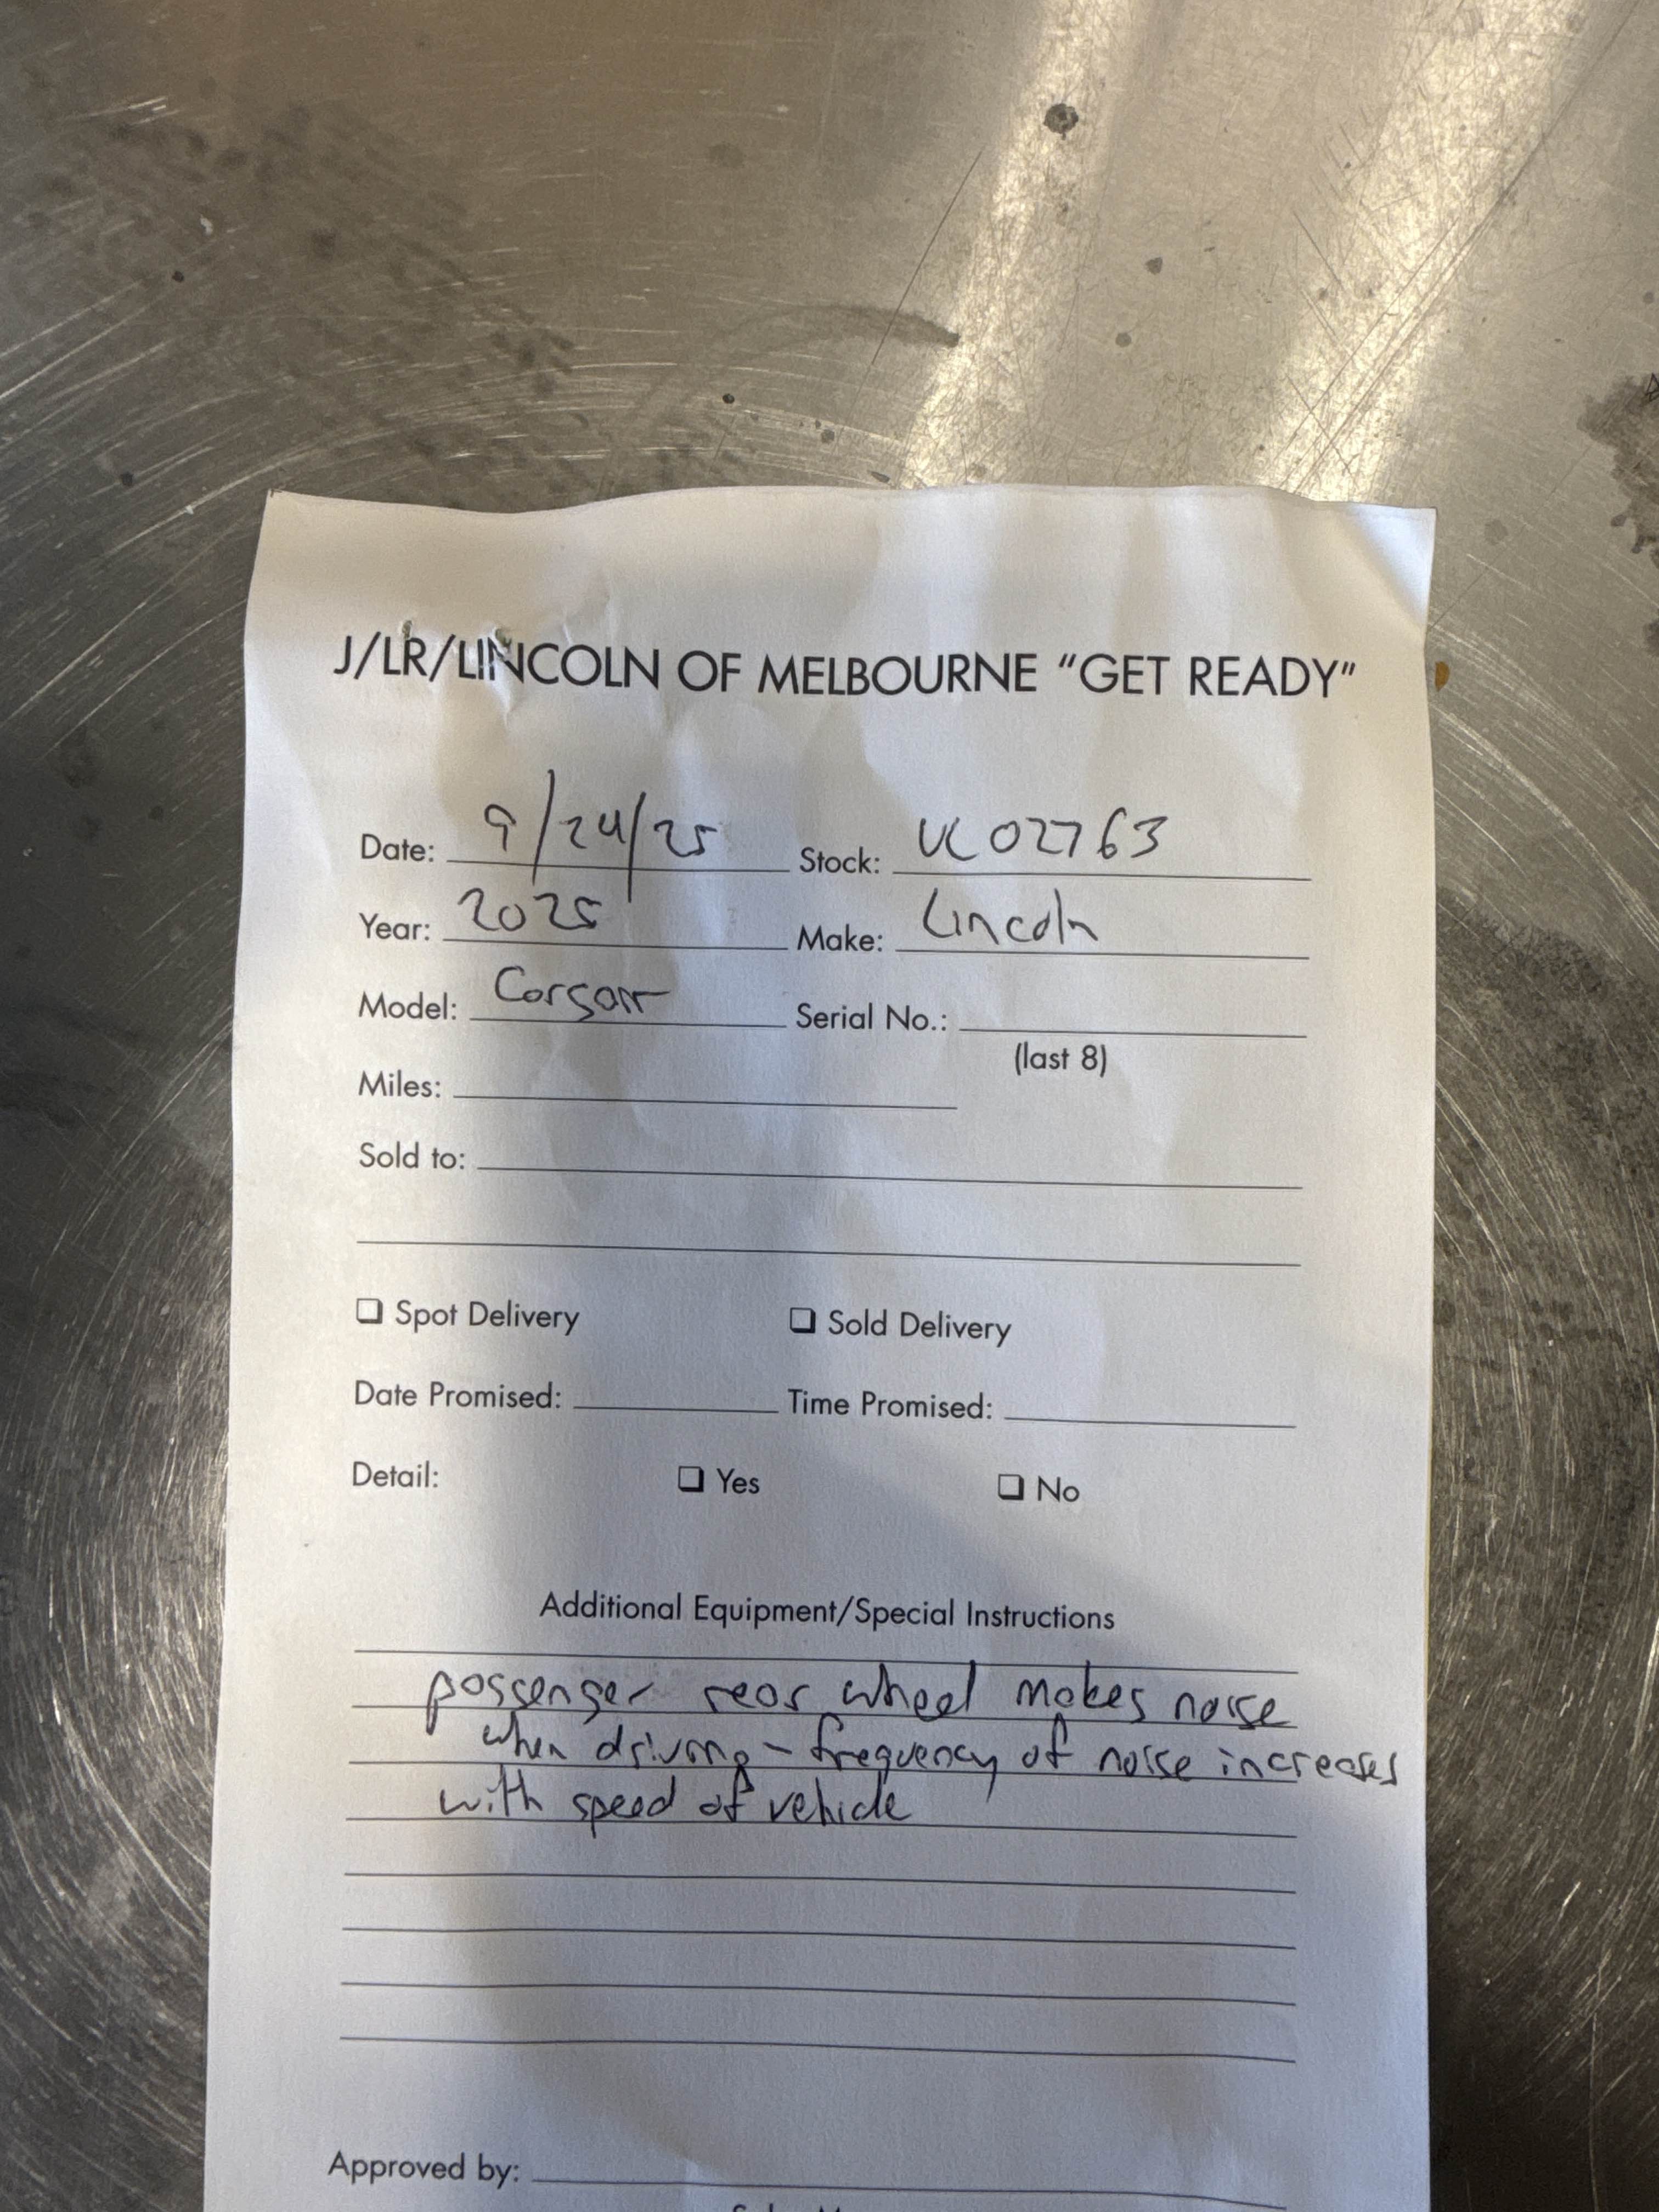 J/LR/LINCOLN OF MELBOURNE "GET READY"
Date: 9/24/25 Stock: UC02763
Year: 2025 Make: Lincoln
Model: Corsair Serial No.:
(last 8)
Miles:
Sold to:
Spot Delivery Sold Delivery
Date Promised: Time Promised:
Detail: Yes No
Additional Equipment/Special Instructions
passenger rear wheel makes noise
when driving - frequency of noise increases
with speed of vehicle
Approved by: